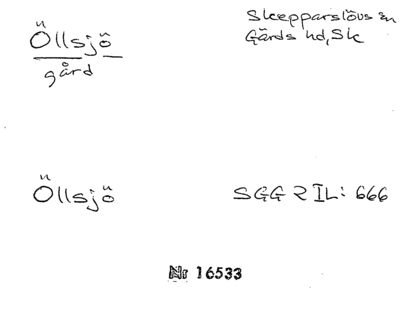 Öllsjö
gård
Skepparslövs sn
Gärds hd, Sk
Öllsjö
SGG 2 IL: 666
Nr 16533